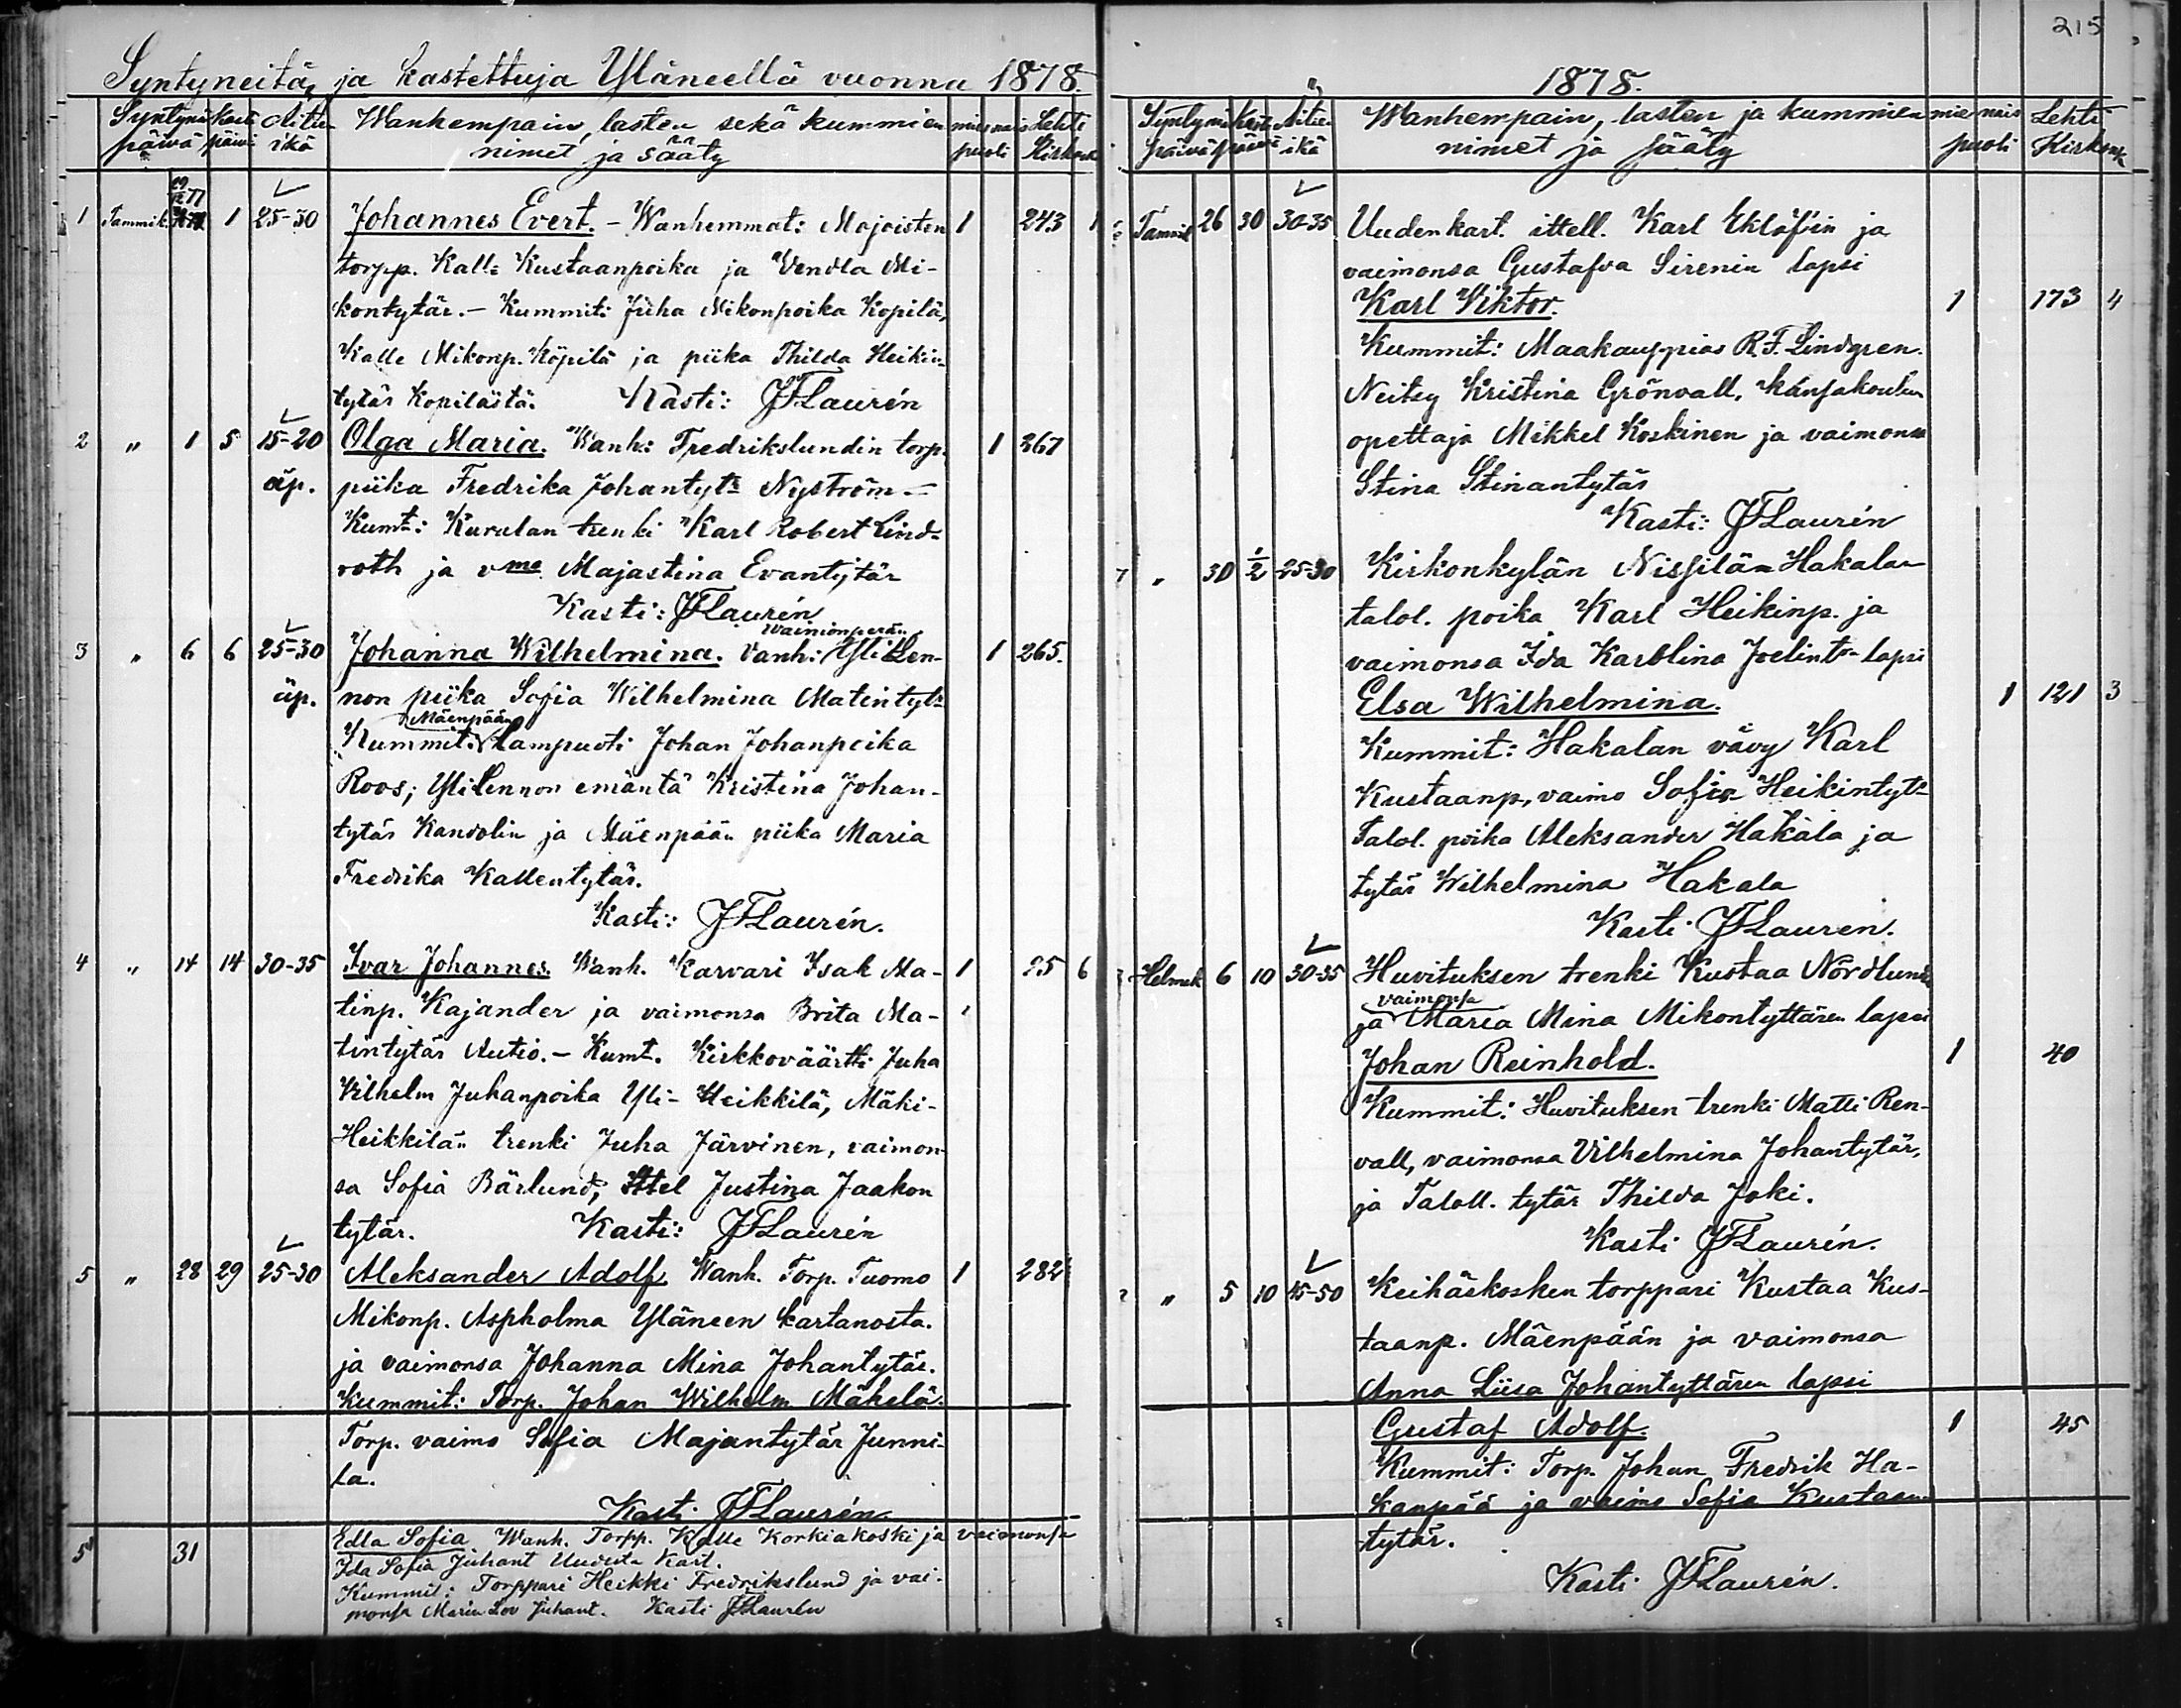 Syntyneitä ja kastettuja Yläneellä vuonna 1878.
Syntymä Kaste Äitin Wanhempain, lasten sekä kummien mies nais Lehti
päivä päivä ikä nimet ja sääty puoli Kirkonk
1 Tammik. 1 25-30 Johannes Evert. - Wanhemmat: Majoisten 1 243 1
torpp. Kalle Kustaanpoika ja Wendla Mi-
kontytär. - Kummit: Juha Mikonpoika Kopilä,
Kalle Mikonp. Köpilä ja piika Thilda Heikin-
tytär Kopilästä. Kasti: JFLaurén
2 " 1 5 15-20 Olga Maria. Wanh: Fredrikslundin torp. 1 267
äp. piika Fredrika Johantytr Nyström -
Kumt: Kurulan trenki Karl Robert Lind-
roth ja vmo Majastina Evantytär
Kasti: JFLaurén
Wainionperän
3 " 6 6 25-30 Johanna Wilhelmina. Vanh: Yli Len- 1 265.
äp. non piika Sofia Wilhelmina Matintytr
Mäenpään
Kummit: lampuoti Johan Johanpoika
Roos; Ylilennon emäntä Kristina Johan-
tytär Kandolin ja Mäenpään piika Maria
Fredrika Kallentytär.
Kasti: JFLaurén.
4 " 14 14 30-35 Ivar Johannes. Wanh. Karvari Isak Ma- 1 25 6
tinp. Kajander ja vaimonsa Brita Ma-
tintytär Autio. - Kumt. Kirkkoväärtti Juha
Vilhelm Juhanpoika Yli-Heikkilä, Mäki-
Heikkilän trenki Juha Järvinen, vaimon-
sa Sofia Bärlund, Ittel Justina Jaakon
tytär. Kasti: JFLaurén
5 " 28 29 25-30 Aleksander Adolf. Wanh. Torp. Tuomo 1 282
Mikonp. Aspholma Yläneen kartanosta.
ja vaimonsa Johanna Mina Johantytär.
Kummit: Torp. Johan Wilhelm Mäkelä.
Torp. vaimo Sofia Majantytär Junni-
la.
Kasti JFLaurén
5 31 Edla Sofia Wanh. Torpp. Kalle Korkiakoski ja vaimonsa
Ida Sofia Juhant Uudesta Kart.
Kummit: Torppari Heikki Fredrikslund ja vai-
monsa Maria Lov Juhant. Kasti JFLaurén
215
1878.
Syntymä Kaste Äitin Wanhempain, lasten ja kummien mies nais Lehti
päivä päivä ikä nimet ja sääty puoli Kirkonk
Tammik 26 30 30-35 Uudenkart. ittell. Karl Eklöf'in ja
vaimonsa Gustafva Sirenin lapsi
Karl Viktor. 1 173 4
Kummit: Maakauppias R.F. Lindgren.
Neitsy Kristina Grönvall, kansakoulun
opettaja Mikkel Koskinen ja vaimonsa
Stina Stinantytär
Kasti: JFLaurén
7 " 30 1/2 25-30 Kirkonkylän Nissilän Hakalan
talol. poika Karl Heikinp. ja
vaimonsa Ida Karolina Joelintr lapsi
Elsa Wilhelmina. 1 121 3
Kummit: Hakalan vävy Karl
Kustaanp., vaimo Sofia Heikintytr
Talol. poika Aleksander Hakala ja
tytär Wilhelmina Hakala
Kasti JFLauren.
Helmik 6 10 30-35 Huvituksen trenki Kustaa Nordlund
vaimonsa
ja Maria Mina Mikontyttären lapsi
Johan Reinhold. 1 40
Kummit: Huvituksen trenki Matti Ren-
vall, vaimonsa Vilhelmina Johantytär,
ja Taloll. tytär Thilda Joki.
Kasti JFLaurén.
" 5 10 45-50 Keihäskosken torppari Kustaa Kus-
taanp. Mäenpään ja vaimonsa
Anna Liisa Johantyttären lapsi
Gustaf Adolf. 1 45
Kummit: Torp. Johan Fredrik Ha-
kanpää ja vaimo Sofia Kustaan
tytär.
Kasti JFLaurén.